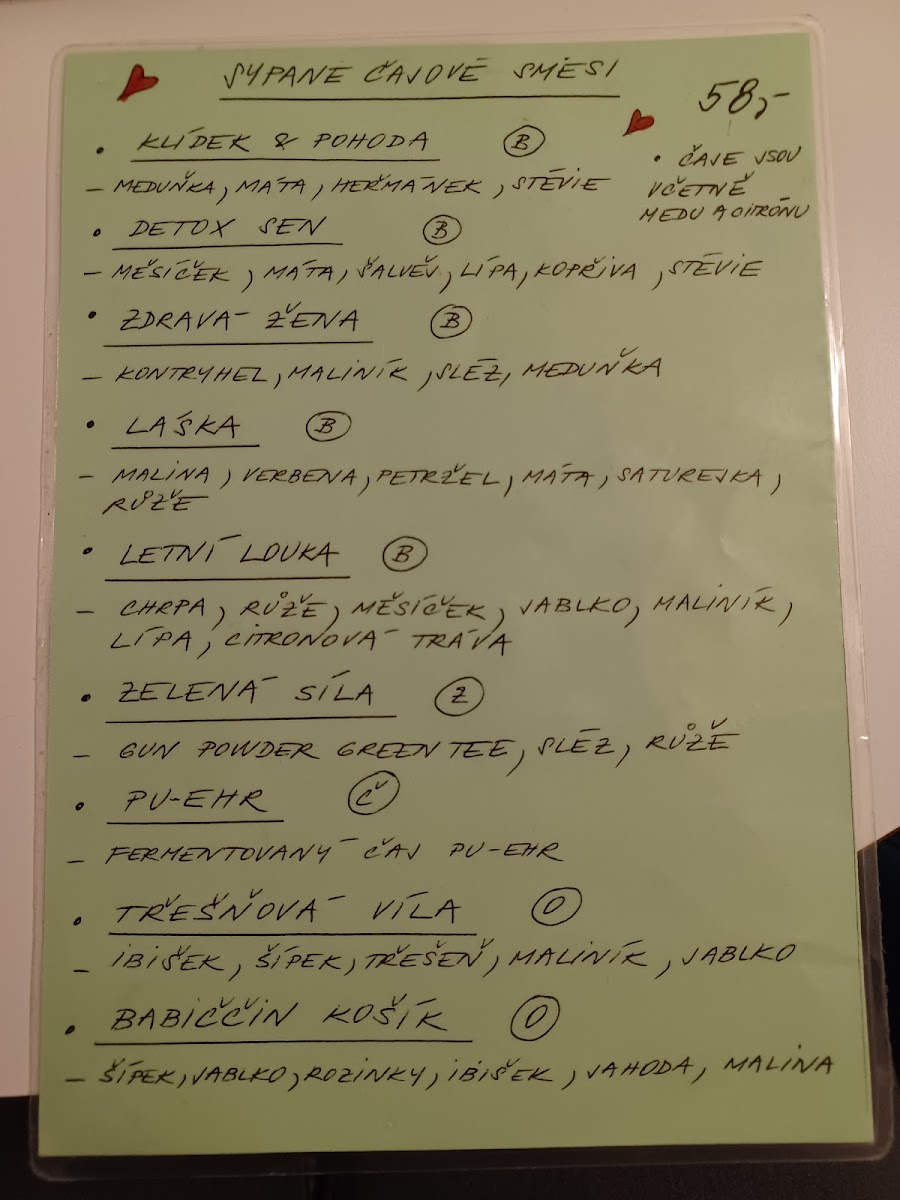 SYPANÉ ČAJOVÉ SMĚSI
58,-
• ČAJE JSOU
VČETNĚ
MEDU A CITRÓNU
• KLÍDEK & POHODA B
– MEDUŇKA, MÁTA, HEŘMÁNEK, STÉVIE
• DETOX SEN B
– MĚSÍČEK, MÁTA, ŠALVĚJ, LÍPA, KOPŘIVA, STÉVIE
• ZDRAVÁ ŽENA B
– KONTRYHEL, MALINÍK, SLÉZ, MEDUŇKA
• LÁSKA B
– MALINA, VERBENA, PETRŽEL, MÁTA, SATUREJKA,
RŮŽE
• LETNÍ LOUKA B
– CHRPA, RŮŽE, MĚSÍČEK, JABLKO, MALINÍK,
LÍPA, CITRONOVÁ TRÁVA
• ZELENÁ SÍLA Z
– GUN POWDER GREEN TEE, SLÉZ, RŮŽE
• PU-EHR Č
– FERMENTOVANÝ ČAJ PU-EHR
• TŘEŠŇOVÁ VÍLA O
– IBIŠEK, ŠÍPEK, TŘEŠEŇ, MALINÍK, JABLKO
• BABIČČIN KOŠÍK O
– ŠÍPEK, JABLKO, ROZINKY, IBIŠEK, JAHODA, MALINA